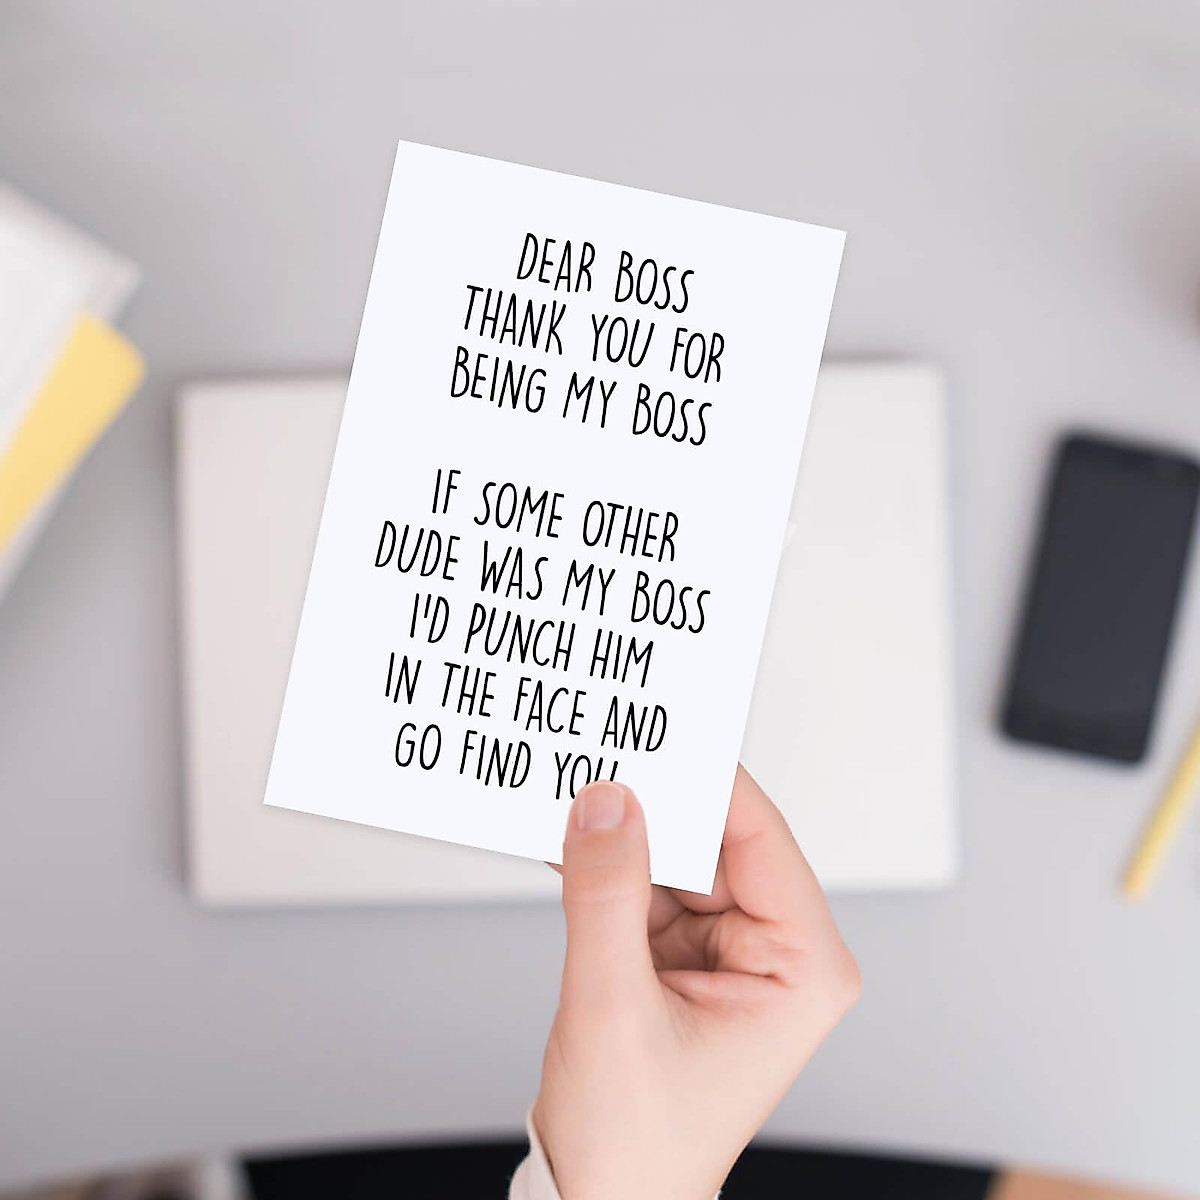 DEAR BOSS
THANK YOU FOR
BEING MY BOSS
IF SOME OTHER
DUDE WAS MY BOSS
I'D PUNCH HIM
IN THE FACE AND
GO FIND YOU